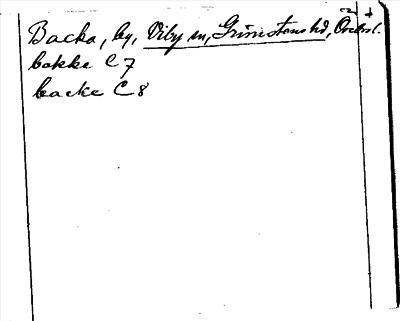 Backa, by, Viby sn, Grimstens hd, Örebro l.
bakka C 7
backe C 8